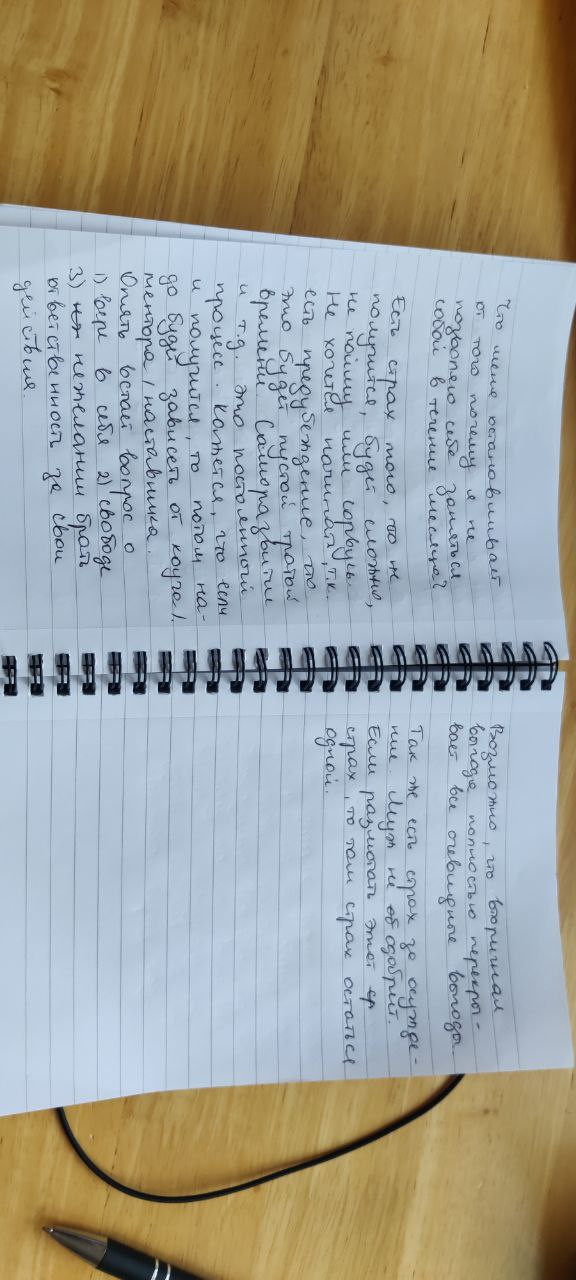 Что меня останавливает
от того почему я не
позволяю себе заняться
собой в течение месяца?
Есть страх того, что не
получится, будет сложно,
не пойму или сорвусь.
Не хочется начинать, т.к.
есть предубеждение, что
это будет пустой тратой
времени. Саморазвитие
и т.д. это постоянный
процесс. Кажется, что если
и получится, то потом на-
до будет зависеть от коуча /
ментора / наставника.
Опять встает вопрос о
1) вере в себя 2) свободе
3) нежелании брать
ответственность за свои
действия.
Возможно, что вторичная
выгода полностью перекры-
вает все очевидные выгоды.
Так же есть страх за осужде-
ние. Муж не одобрит.
Если размотать этот
страх, то там страх остаться
одной.